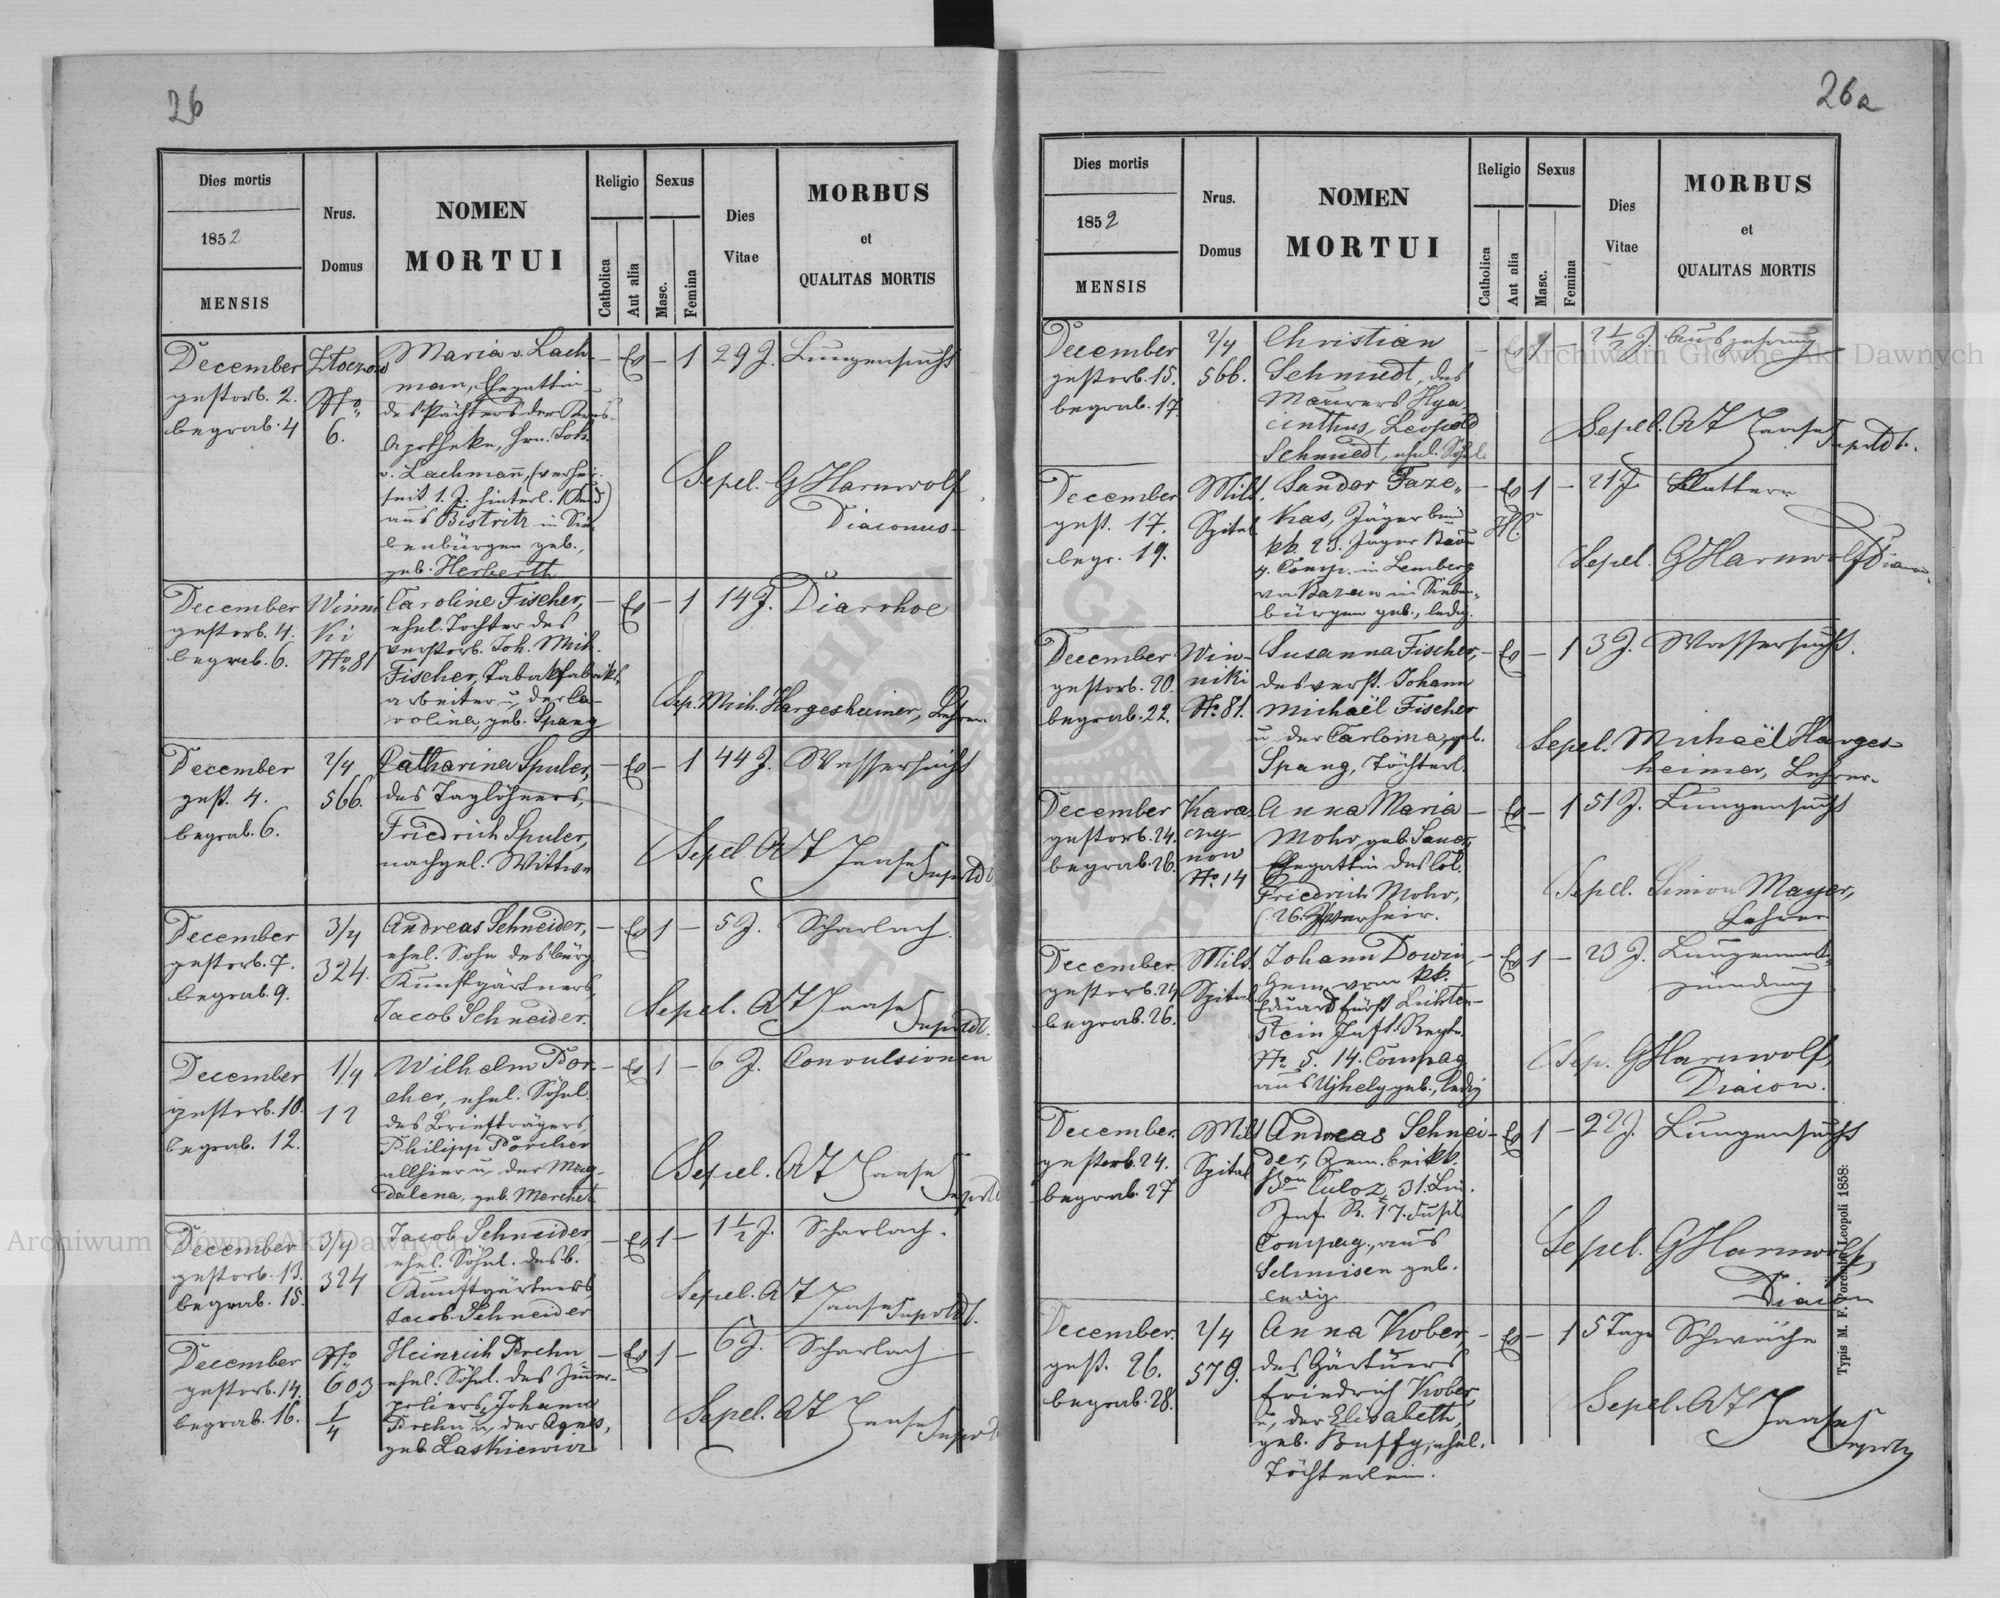 26
Dies mortis
1852
MENSIS
Nrus.
Domus
NOMEN
MORTUI
Religio
Catholica
Aut alia
Sexus
Masc.
Femina
Dies
Vitae
MORBUS
et
QUALITAS MORTIS
December
gestorb. 2.
begrab. 4
Złoczow
No
6.
Maria v. Lach-
man, Ehegattin
des Pächters der Kreis
Apotheke, Hrn. Joh.
v. Lachmann, (verhei.
seit 1. J. hinterl. 1 Kind)
aus Bistritz in Sie-
benbürgen geb.,
geb. Herberth
— Ev — 1
29 J.
Lungensucht
Sepel. G Harnwolf
Diaconus
December
gestorb. 4.
begrab. 6.
Winni
ki
No. 81
Caroline Fischer,
ehel. Tochter des
verstorb. Joh. Mich.
Fischer, Tabakfabriks
arbeiter u. der Ca-
rolina, geb. Spang
— Ev — 1
14 J.
Diarrhoe
Sep. Mich. Hargesheimer, Lehrer
December
gest. 4.
begrab. 6.
2/4
566.
Catharina Spuler,
des Taglöhners,
Friedrich Spuler,
nachgel. Wittwe
— Ev — 1
44 J.
Wassersucht
Sepel. A F Haase Suprdt
December
gestorb. 7.
begrab. 9.
3/4
324.
Andreas Schneider,
ehel. Sohn des bürg.
Kunstgärtners,
Jacob Schneider.
— Ev 1 —
5 J.
Scharlach.
Sepel. A F Haase Suprdt.
December
gestorb. 10.
begrab. 12.
1/4
12
Wilhelm Por-
cher, ehel. Söhnl.
des Briefträgers,
Philipp Porcher
allhier u. der Mag-
dalena, geb. Merchet
— Ev 1 —
6 J.
Convulsionen
Sepel. A F Haase Suprdt
December
gestorb. 13.
begrab. 15.
3/4
324
Jacob Schneider
ehel. Söhnl. des b.
Kunstgärtners
Jacob Schneider
— Ev 1 —
1 1/2 J.
Scharlach.
Sepel. A F Haase Suprdt.
December
gestorb. 14.
begrab. 16.
No
603
1/4
Heinrich Prehn
ehel. Söhnl. des Zimmer-
poliers, Johann
Prehn u. der Agnes,
geb. Laskiewicz
— Ev 1 —
6 J.
Scharlach
Sepel. A F Haase Suprdt
26a
Dies mortis
1852
MENSIS
Nrus.
Domus
NOMEN
MORTUI
Religio
Catholica
Aut alia
Sexus
Masc.
Femina
Dies
Vitae
MORBUS
et
QUALITAS MORTIS
December
gestorb. 15.
begrab. 17
2/4
566.
Christian
Schmiedt, des
Maurers Hya-
cinthus, Leopold
Schmiedt, ehel. Söhnl.
— Ev 1 —
2 1/2 J.
Auszehrung
Sepel. A F Haase Suprdt.
December
gest. 17.
begr. 19.
Milit.
Spital
Sandor Faze-
kas, Jäger beim
kk. 23. Jäger Baon
4. Comp. in Lemberg
von Bazan in Sieben-
bürgen geb., ledig.
— Ev 1 —
21 J.
Blattern
Sepel. G Harnwolf Diacon.
December
gestorb. 20.
begrab. 22.
Win-
niki
No. 81.
Susanna Fischer,
des verst. Johann
Michaël Fischer
u. der Carloina, geb.
Spang, Töchterl.
— Ev — 1
3 J.
Wassersucht.
Sepel. Michaël Harges-
heimer, Lehrer.
December
gestorb. 24.
begrab. 26.
Kara
czy
now
No. 14
Anna Maria
Mohr, geb. Sauer,
Ehegattin des Col.
Friedrich Mohr,
(26. J. verheir.
— Ev — 1
51 J.
Lungensucht
Sepel. Simon Mayer,
Lehrer
December.
gestorb. 24
begrab. 26.
Milit.
Spital
Johann Dowin,
Gem. vom kk.
Eduard Fürst Lichten-
stein Inft. Regte.
No 5. 14. Compag
aus Ujhely geb., ledig
— Ev 1 —
23 J.
Lungenent-
zündung
Sep. G Harnwolf,
Diacon.
December.
gestorb. 24.
begrab. 27
Milit
Spital
Andreas Schnei-
der, Gem. bei kk.
Bon Culoz, 31. Lin.
Inf. R. 17. Füsil.
Compag., aus
Schmisen geb.
ledig.
— Ev 1 —
22 J.
Lungensucht
Sepel. G Harnwolf,
Diacon
December.
gest. 26.
begrab. 28.
2/4
579.
Anna Kober,
des Gärtners
Friedrich Kober
u. der Elisabeth,
geb. Buffy, ehel.
Töchterlein.
— Ev — 1
5 Tage
Schwäche
Sepel. A F Haase Suprdt
Typis M. F. Poremba Leopoli 1858:
Archiwum Główne Akt Dawnych
Archiwum Główne Akt Dawnych